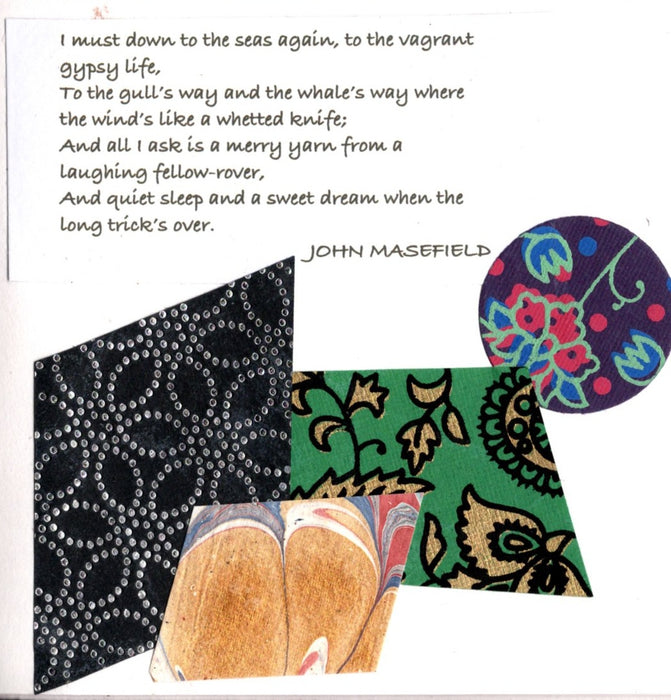 I must down to the seas again, to the vagrant
gypsy life,
To the gull's way and the whale's way where
the wind's like a whetted knife;
And all I ask is a merry yarn from a
laughing fellow-rover,
And quiet sleep and a sweet dream when the
long trick's over.
JOHN MASEFIELD